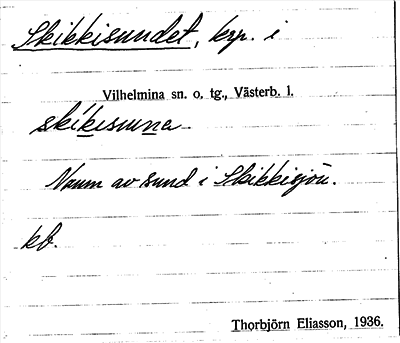 Skikkisundet, krp. i
Vilhelmina sn. o. tg., Västerb. l.
skikisunna
Namn av sund i Skikkisjön.
kb.
Thorbjörn Eliasson, 1936.